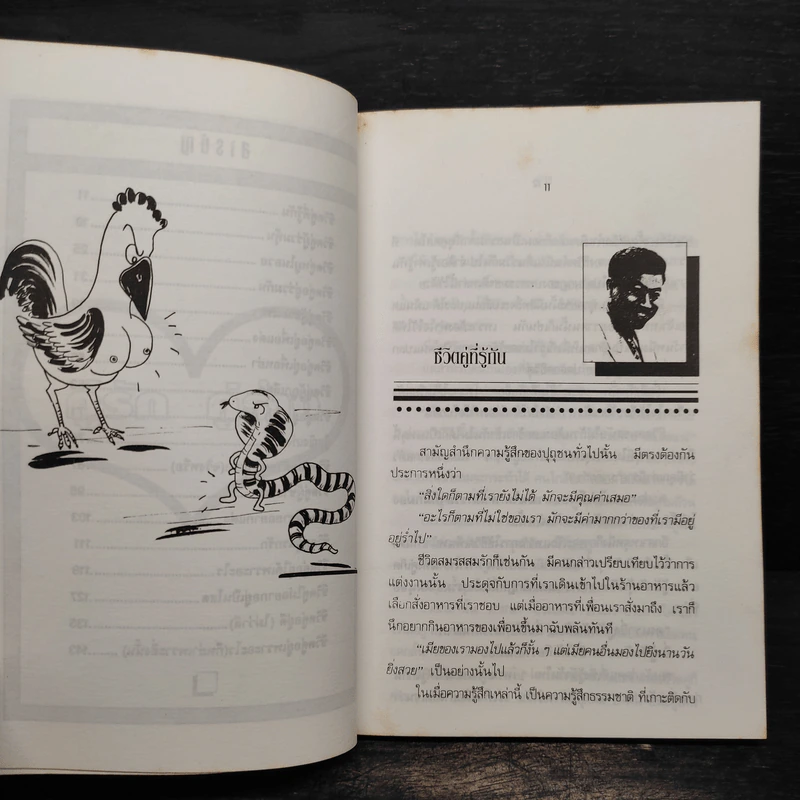 11
ชีวิตคู่ที่รู้กัน
สามัญสำนึกความรู้สึกของปุถุชนทั่วไปนั้น มีตรงต้องกัน
ประการหนึ่งว่า
“สิ่งใดก็ตามที่เรายังไม่ได้ มักจะมีคุณค่าเสมอ”
“อะไรก็ตามที่ไม่ใช่ของเรา มักจะมีค่ามากกว่าของที่เรามีอยู่
อยู่ร่ำไป”
ชีวิตสมรสสมรักก็เช่นกัน มีคนกล่าวเปรียบเทียบไว้ว่าการ
แต่งงานนั้น ประดุจกับการที่เราเดินเข้าไปในร้านอาหารแล้ว
เลือกสั่งอาหารที่เราชอบ แต่เมื่ออาหารที่เพื่อนเราสั่งมาถึง เราก็
นึกอยากกินอาหารของเพื่อนขึ้นมาฉับพลันทันที
“เมียของเรามองไปแล้วก็งั้น ๆ แต่เมียคนอื่นมองไปยิ่งนานวัน
ยิ่งสวย” เป็นอย่างนั้นไป
ในเมื่อความรู้สึกเหล่านี้ เป็นความรู้สึกธรรมชาติ ที่เกาะติดกับ